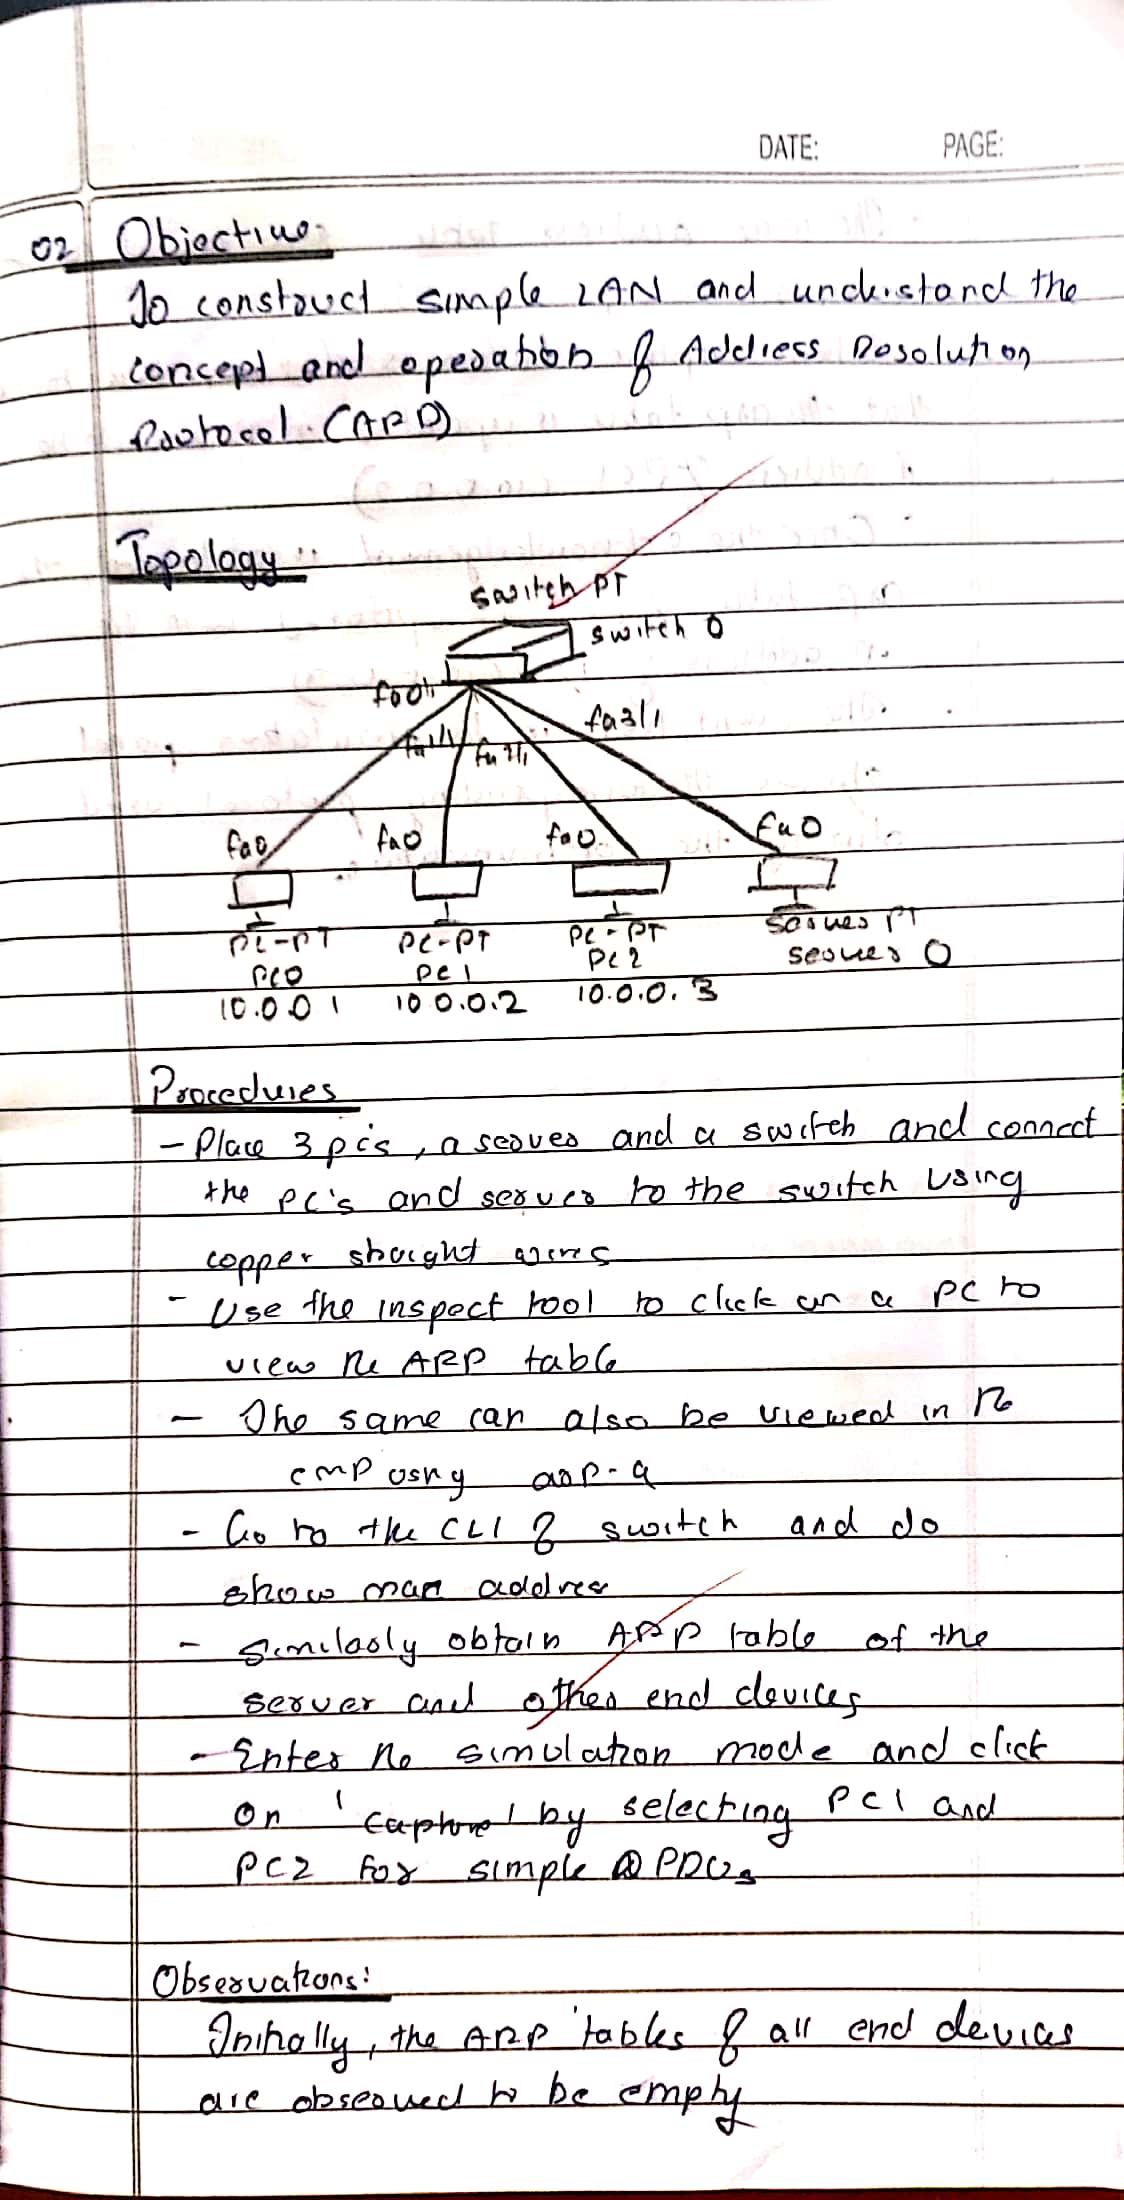 DATE: PAGE:
02 Objective:
To construct simple LAN and understand the
concept and operation of Address Resolution
Protocol (ARP)
Topology :
switch PT
switch 0
fa0/1
fa3/1
fa1/1 fa2/1
fa0 fa0 fa0 fa0
PC-PT PC-PT PC-PT server PT
PC0 PC1 PC2 server 0
10.0.0.1 10.0.0.2 10.0.0.3
Procedures
- Place 3 pc's, a server and a switch and connect
the PC's and server to the switch using
copper straight wires
- Use the inspect tool to click on a PC to
view the ARP table
- The same can also be viewed in the
cmp using arp-a
- Go to the CLI of switch and do
show mac address
- Similarly obtain ARP table of the
server and other end devices
- Enter the simulation mode and click
on 'Capture' by selecting PC1 and
PC2 for simple PDUs
Observations:
Initially, the ARP tables of all end devices
are observed to be empty